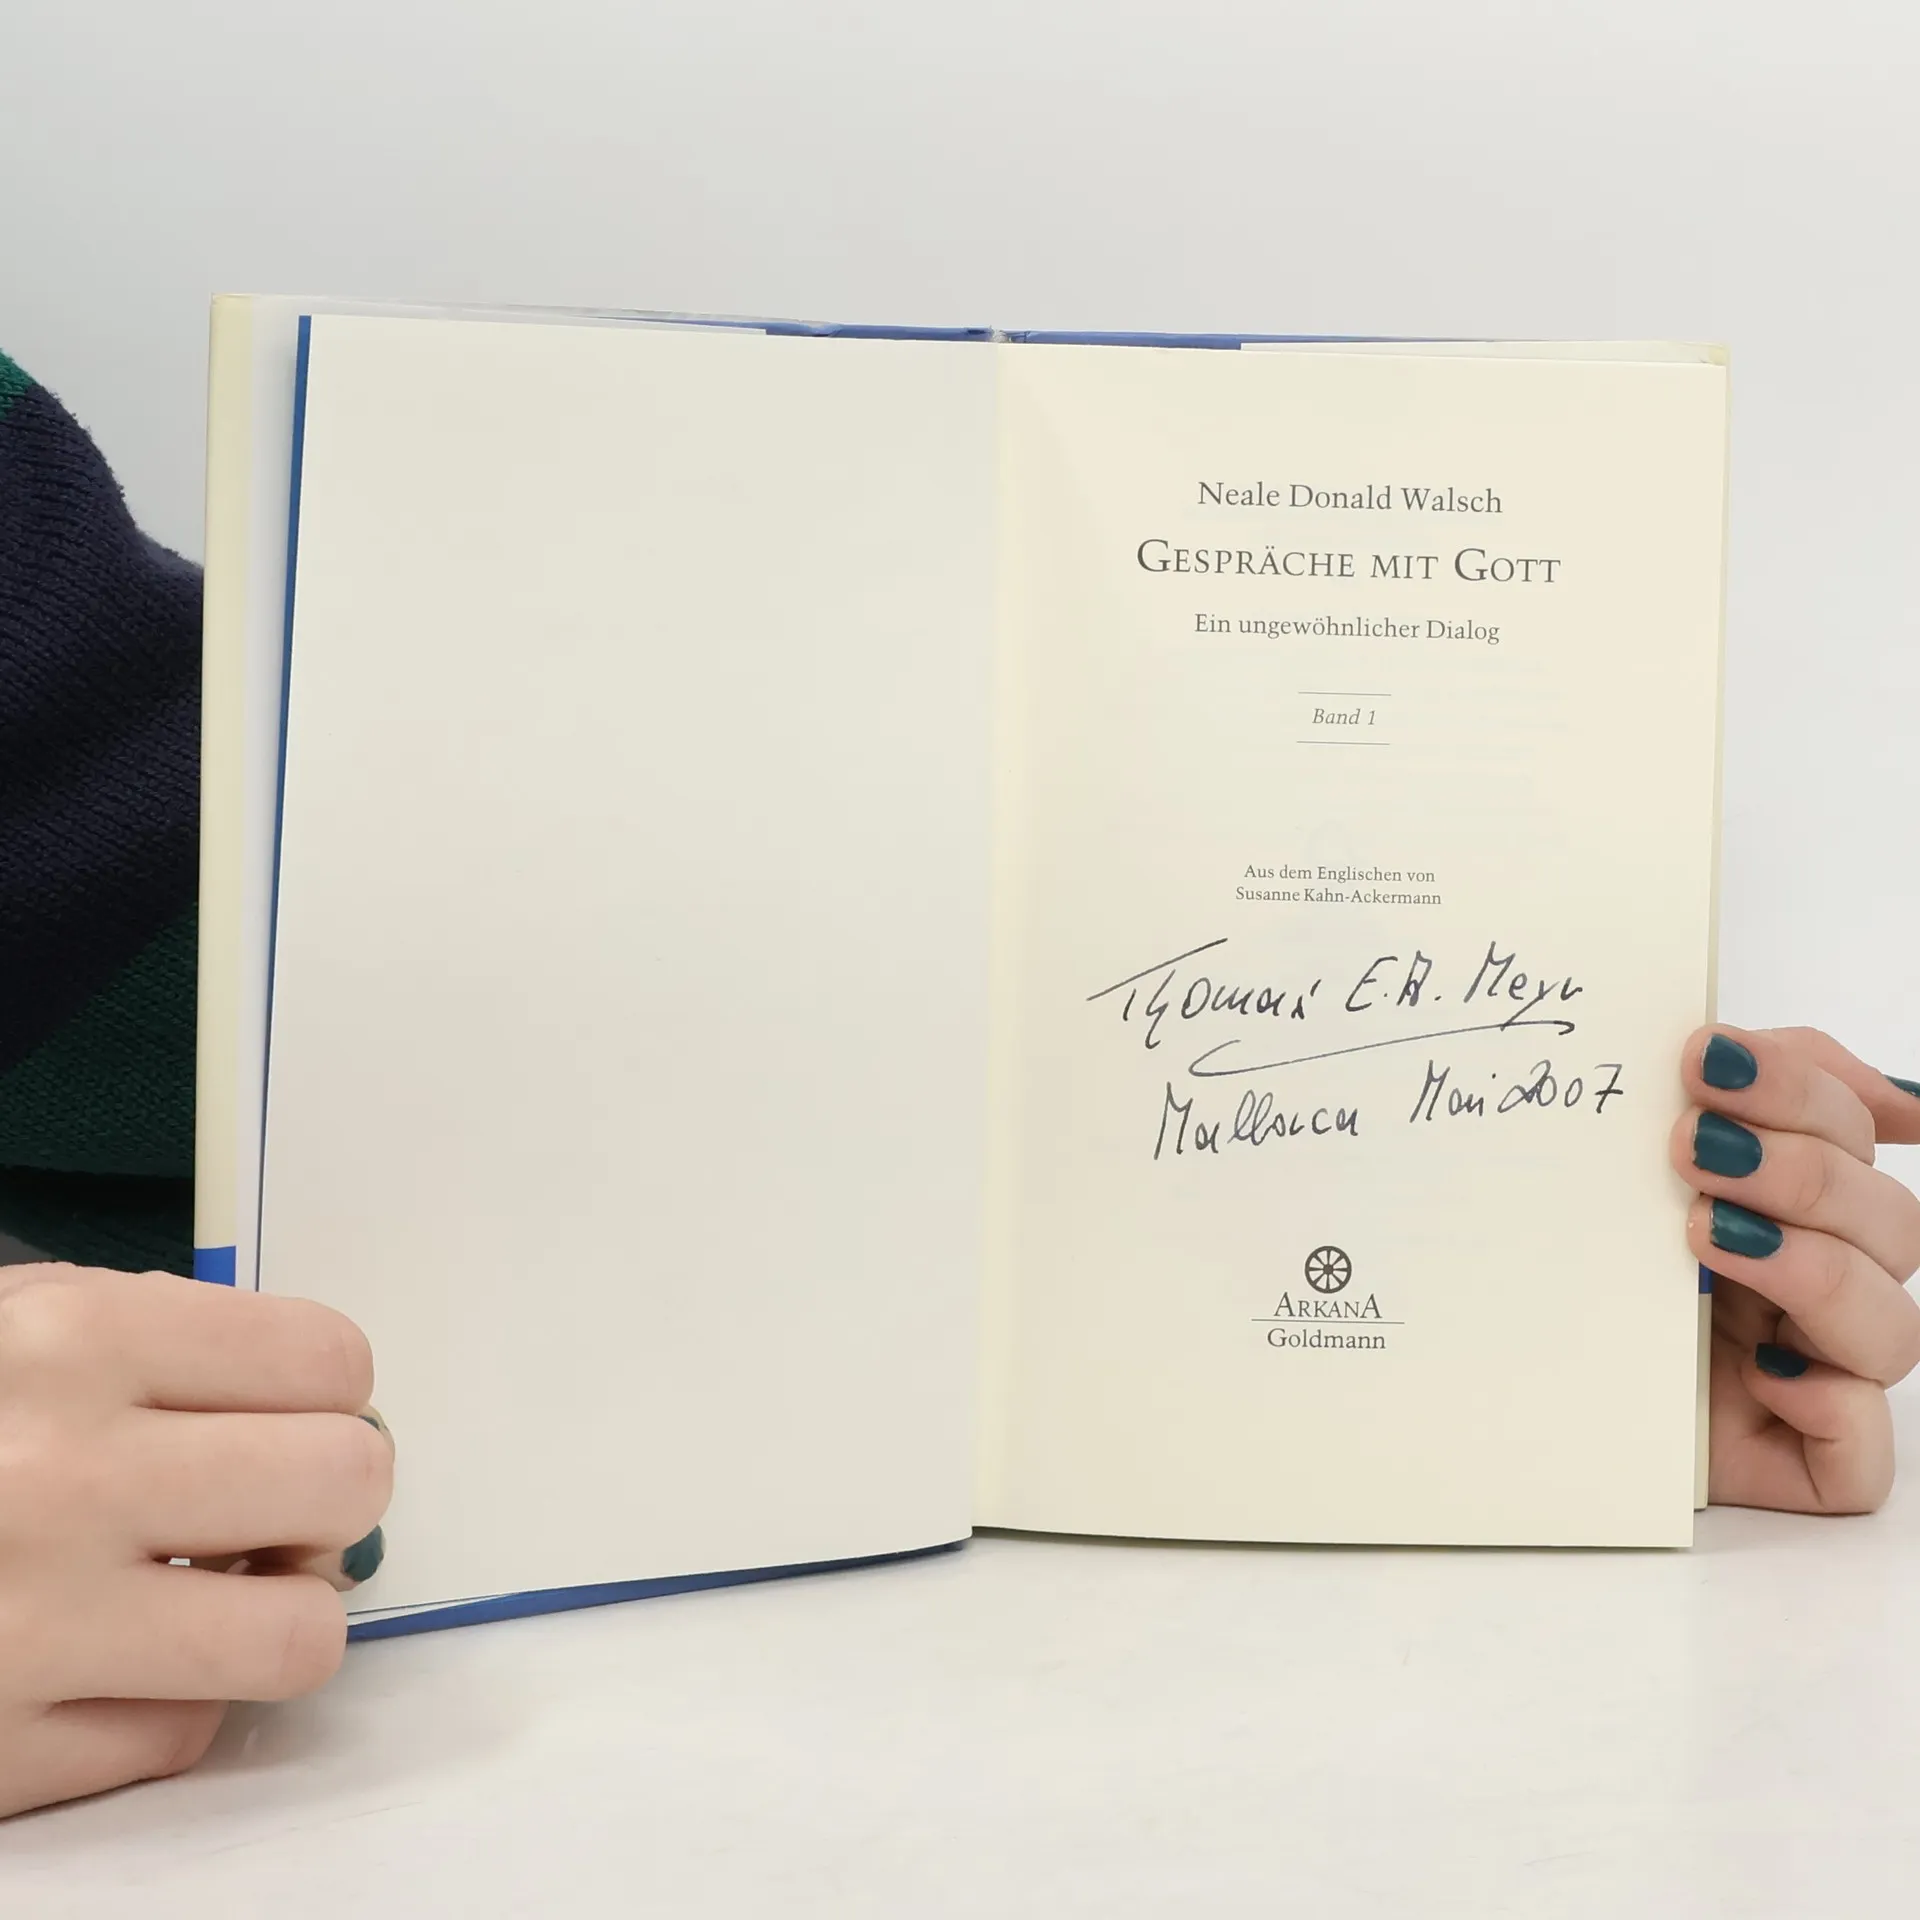 Neale Donald Walsch
GESPRÄCHE MIT GOTT
Ein ungewöhnlicher Dialog
Band 1
Aus dem Englischen von
Susanne Kahn-Ackermann
Thomas E.A.
Mallorca Mai 2007
ARKANA
Goldmann